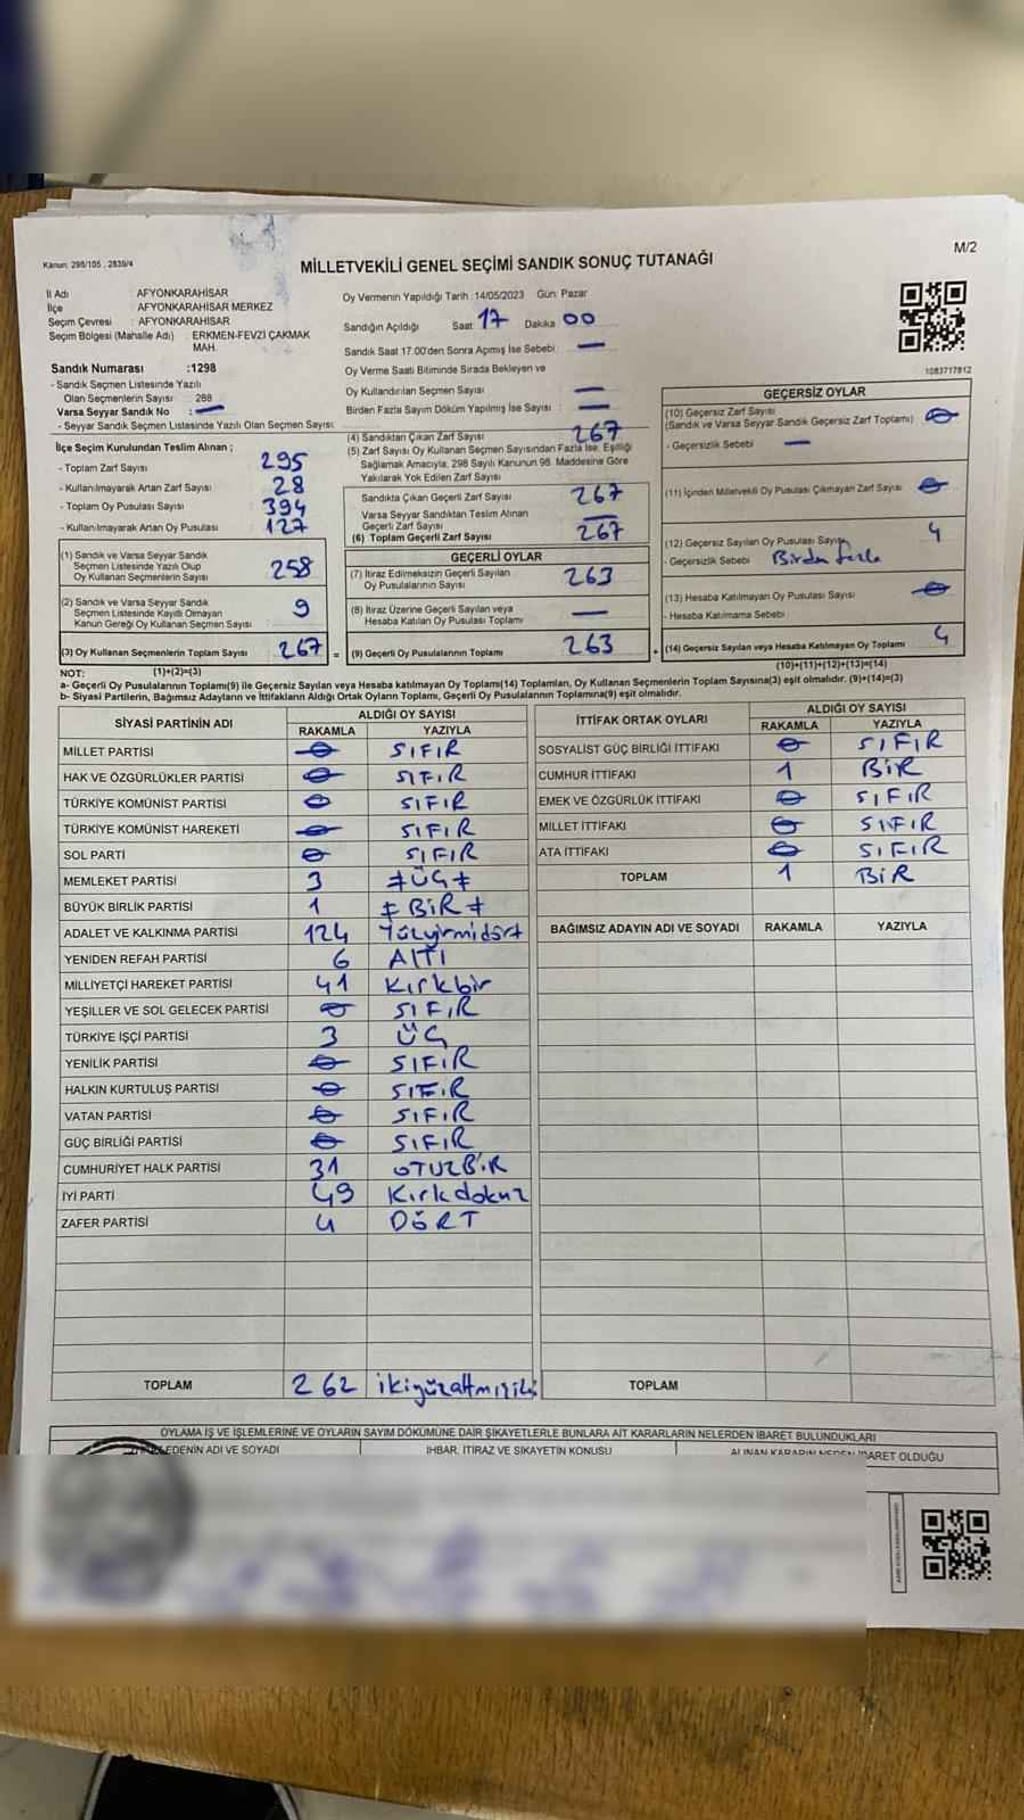 M/2
Kanun: 298/105 , 2839/4
MİLLETVEKİLİ GENEL SEÇİMİ SANDIK SONUÇ TUTANAĞI
İl Adı : AFYONKARAHİSAR
İlçe : AFYONKARAHİSAR MERKEZ
Seçim Çevresi : AFYONKARAHİSAR
Seçim Bölgesi (Mahalle Adı) : ERKMEN-FEVZİ ÇAKMAK MAH.
Sandık Numarası :1298
- Sandık Seçmen Listesinde Yazılı
Olan Seçmenlerin Sayısı : 288
Varsa Seyyar Sandık No : —
- Seyyar Sandık Seçmen Listesinde Yazılı Olan Seçmen Sayısı:
Oy Vermenin Yapıldığı Tarih :14/05/2023 Gün: Pazar
Sandığın Açıldığı Saat 17 Dakika 00
Sandık Saat 17.00'den Sonra Açılmış İse Sebebi —
Oy Verme Saati Bitiminde Sırada Bekleyen ve
Oy Kullandırılan Seçmen Sayısı —
Birden Fazla Sayım Döküm Yapılmış İse Sayısı —
1083717812
İlçe Seçim Kurulundan Teslim Alınan ;
- Toplam Zarf Sayısı 295
- Kullanılmayarak Artan Zarf Sayısı 28
- Toplam Oy Pusulası Sayısı 394
- Kullanılmayarak Artan Oy Pusulası 127
(1) Sandık ve Varsa Seyyar Sandık
Seçmen Listesinde Yazılı Olup
Oy Kullanan Seçmenlerin Sayısı 258
(2) Sandık ve Varsa Seyyar Sandık
Seçmen Listesinde Kayıtlı Olmayan
Kanun Gereği Oy Kullanan Seçmen Sayısı 9
(3) Oy Kullanan Seçmenlerin Toplam Sayısı 267
(1)+(2)=(3)
(4) Sandıktan Çıkan Zarf Sayısı 267
(5) Zarf Sayısı Oy Kullanan Seçmen Sayısından Fazla İse, Eşitliği
Sağlamak Amacıyla, 298 Sayılı Kanunun 98. Maddesine Göre
Yakılarak Yok Edilen Zarf Sayısı
Sandıkta Çıkan Geçerli Zarf Sayısı 267
Varsa Seyyar Sandıktan Teslim Alınan
Geçerli Zarf Sayısı —
(6) Toplam Geçerli Zarf Sayısı 267
GEÇERLİ OYLAR
(7) İtiraz Edilmeksizin Geçerli Sayılan
Oy Pusulalarının Sayısı 263
(8) İtiraz Üzerine Geçerli Sayılan veya
Hesaba Katılan Oy Pusulası Toplamı —
= (9) Geçerli Oy Pusulalarının Toplamı 263
GEÇERSİZ OYLAR
(10) Geçersiz Zarf Sayısı
(Sandık ve Varsa Seyyar Sandık Geçersiz Zarf Toplamı) 0
- Geçersizlik Sebebi —
(11) İçinden Milletvekili Oy Pusulası Çıkmayan Zarf Sayısı 0
(12) Geçersiz Sayılan Oy Pusulası Sayısı 4
- Geçersizlik Sebebi Birden fazla
(13) Hesaba Katılmayan Oy Pusulası Sayısı 0
- Hesaba Katılmama Sebebi
+ (14) Geçersiz Sayılan veya Hesaba Katılmayan Oy Toplamı 4
(10)+(11)+(12)+(13)=(14)
NOT:
a- Geçerli Oy Pusulalarının Toplamı(9) ile Geçersiz Sayılan veya Hesaba katılmayan Oy Toplamı(14) Toplamları, Oy Kullanan Seçmenlerin Toplam Sayısına(3) eşit olmalıdır. (9)+(14)=(3)
b- Siyasi Partilerin, Bağımsız Adayların ve İttifakların Aldığı Ortak Oyların Toplamı, Geçerli Oy Pusulalarının Toplamına(9) eşit olmalıdır.
SİYASİ PARTİNİN ADI ALDIĞI OY SAYISI
RAKAMLA YAZIYLA
MİLLET PARTİSİ 0 SIFIR
HAK VE ÖZGÜRLÜKLER PARTİSİ 0 SIFIR
TÜRKİYE KOMÜNİST PARTİSİ 0 SIFIR
TÜRKİYE KOMÜNİST HAREKETİ 0 SIFIR
SOL PARTİ 0 SIFIR
MEMLEKET PARTİSİ 3 ≠ÜÇ≠
BÜYÜK BİRLİK PARTİSİ 1 ≠BİR≠
ADALET VE KALKINMA PARTİSİ 124 Yüzyirmidört
YENİDEN REFAH PARTİSİ 6 ALTI
MİLLİYETÇİ HAREKET PARTİSİ 41 Kırkbir
YEŞİLLER VE SOL GELECEK PARTİSİ 0 SIFIR
TÜRKİYE İŞÇİ PARTİSİ 3 ÜÇ
YENİLİK PARTİSİ 0 SIFIR
HALKIN KURTULUŞ PARTİSİ 0 SIFIR
VATAN PARTİSİ 0 SIFIR
GÜÇ BİRLİĞİ PARTİSİ 0 SIFIR
CUMHURİYET HALK PARTİSİ 31 OTUZBİR
İYİ PARTİ 49 Kırkdokuz
ZAFER PARTİSİ 4 DÖRT
TOPLAM 262 ikiyüzaltmışiki
İTTİFAK ORTAK OYLARI ALDIĞI OY SAYISI
RAKAMLA YAZIYLA
SOSYALİST GÜÇ BİRLİĞİ İTTİFAKI 0 SIFIR
CUMHUR İTTİFAKI 1 BİR
EMEK VE ÖZGÜRLÜK İTTİFAKI 0 SIFIR
MİLLET İTTİFAKI 0 SIFIR
ATA İTTİFAKI 0 SIFIR
TOPLAM 1 BİR
BAĞIMSIZ ADAYIN ADI VE SOYADI RAKAMLA YAZIYLA
TOPLAM
OYLAMA İŞ VE İŞLEMLERİNE VE OYLARIN SAYIM DÖKÜMÜNE DAİR ŞİKAYETLERLE BUNLARA AİT KARARLARIN NELERDEN İBARET BULUNDUKLARI
EDENİN ADI VE SOYADI İHBAR, İTİRAZ VE ŞİKAYETİN KONUSU ALINAN KARARIN NEDEN İBARET OLDUĞU